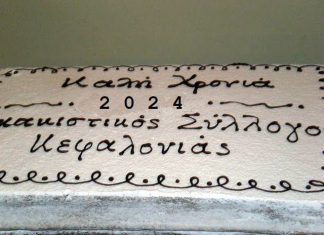 Καλή Χρονιά
2024
κακιστικός Σύλλογο
Κεφαλονιάς